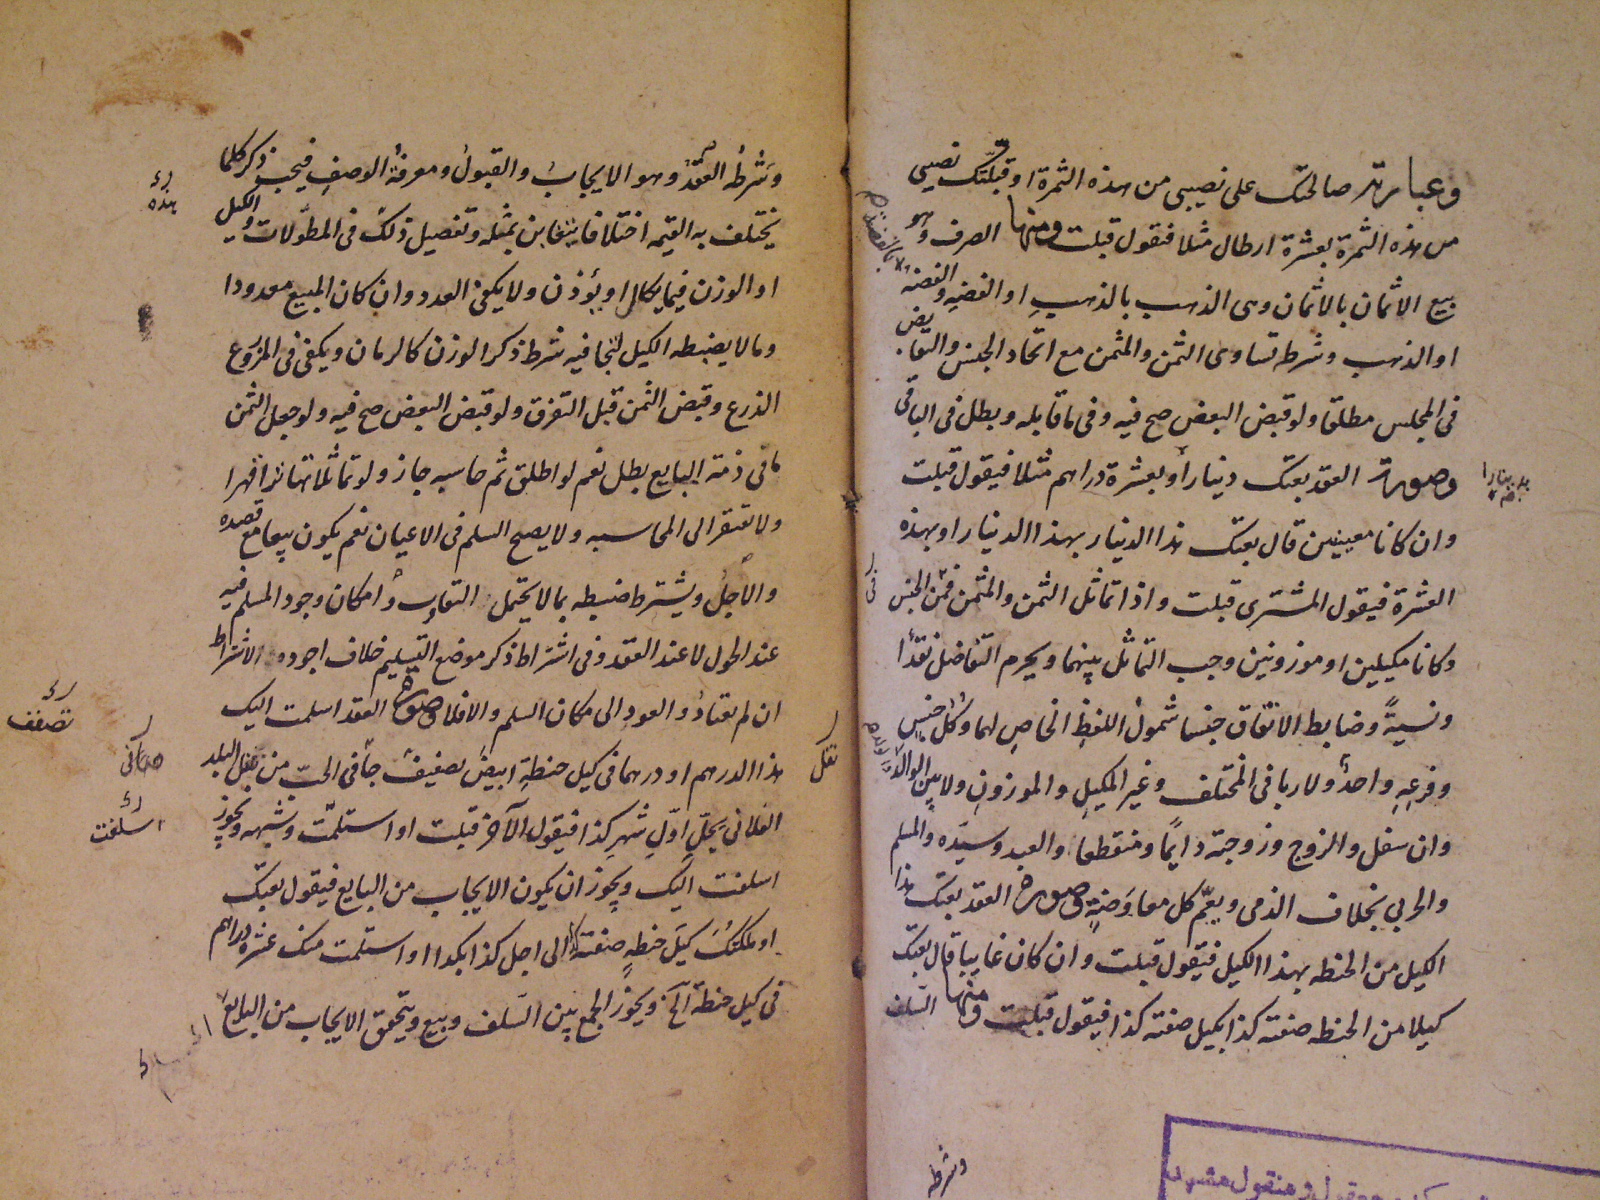 وعبارته صالحتك على نصيبى من هذه الثمرة او قبّلتك نصيبى
من هذه الثمرة بعشرة ارطال مثلا فتقول قبلت ومنها الصرف وهو
بيع الاثمان بالاثمان وهى الذهب بالذهبِ او الفضة والفضة
او الذهب وشرطه تساوى الثمن والمثمن مع اتحاد الجنس والتقابض
فى المجلس مطلقا ولو قبض البعض صح فيه وفى ما قابله وبطل فى الباقى
وصورة العقد بعتك دينارا بعشرة دراهم مثلا فيقول قبلت
وان كانا معينين قال بعتك هذا الدينار بهذا الدينار او بهذه
العشرة فيقول المشترى قبلت واذا تماثل الثمن والمثمن فى الجنس
وكانا مكيلين او موزونين وجب التماثل بينهما ويحرم التفاضل نقدًا
ونسيةً وضابط الاتفاق جنسا شمولُ اللفظِ الخاصِ لهما وكل جنس
وفرعِهِ واحدٌ ولا ربا فى المختلف وغير المكيلِ والموزونِ ولا بين الوالد
وان سفل والزوج وزوجته دايمًا ومنقطعا والعبد وسيّده والمسلم
والحربى بخلاف الذمى ويعمّ كل معاوَضةٍ وصورة العقد بعتك هذا
الكيل من الحنطه بهذا الكيل فيقول قبلت وان كان غايبا قال بعتك
كيلا من الحنطه صفته كذا بكيل صفته كذا فيقول قبلت ومنها السّلف
وشرطه
وشرطُه العقدُ وهو الايجابُ والقبولُ ومعرفةُ الوصفِ فيجب ذكر كلما
يختلف به القيمه اختلافا يتغابن بمثله وتفصيل ذلك فى المطوّلات والكيل
او الوزن فيما يكال او يوُزن ولا يكفى العدد وان كان المبيع معدودا
وما لا يضبطه الكيل لتجافيه شرط ذكر الوزن كالرمان ويكفى فى المزروع
الذرع وقبض الثمن قبل التفرق ولو قبض البعض صح فيه ولو جعل الثمن
ما فى ذمة البايع بطل نعم لو اطلق ثم حاسبه جاز ولو تماثلا تهاترا قهرا
ولا تفتقر الى المحاسبه ولا يصح السلم فى الاعيان نعم يكون بيعا مع قصده
والاجلُ ويشترط ضبطه بما لا يحتمل التفاوت وامكان وجود المسلم فيه
عند الحول لا عند العقد وفى اشتراط ذكر موضع التسليم خلاف اجوده الاشتراط
ان لم يعتادُ والعودِ الى مكان السلم والا فلا وصورة العقد اسلمت اليك
هذا الدرهم او درهما فى كيل حنطةِ ابيضَ نصفيفُ جافى الحبّ من البلد
الفلانى يحلّ اوّلِ شهرِ كذا فيقول الآخر قبلت او استلمت وشبهه ويجوز
اسلفت اليك ويجوز ان يكون الايجاب من البايع فيقول بعتك
او ملكتكَ كيلَ حنطةٍ صفته كذا الى اجل كذا بكذا او استلمت منك عشرة دراهم
فى كيل حنطة الخ ويجوز الجمع بين السّلف وبيع ويتحقق الايجاب من البايع
هذه
نقل
اسلفت